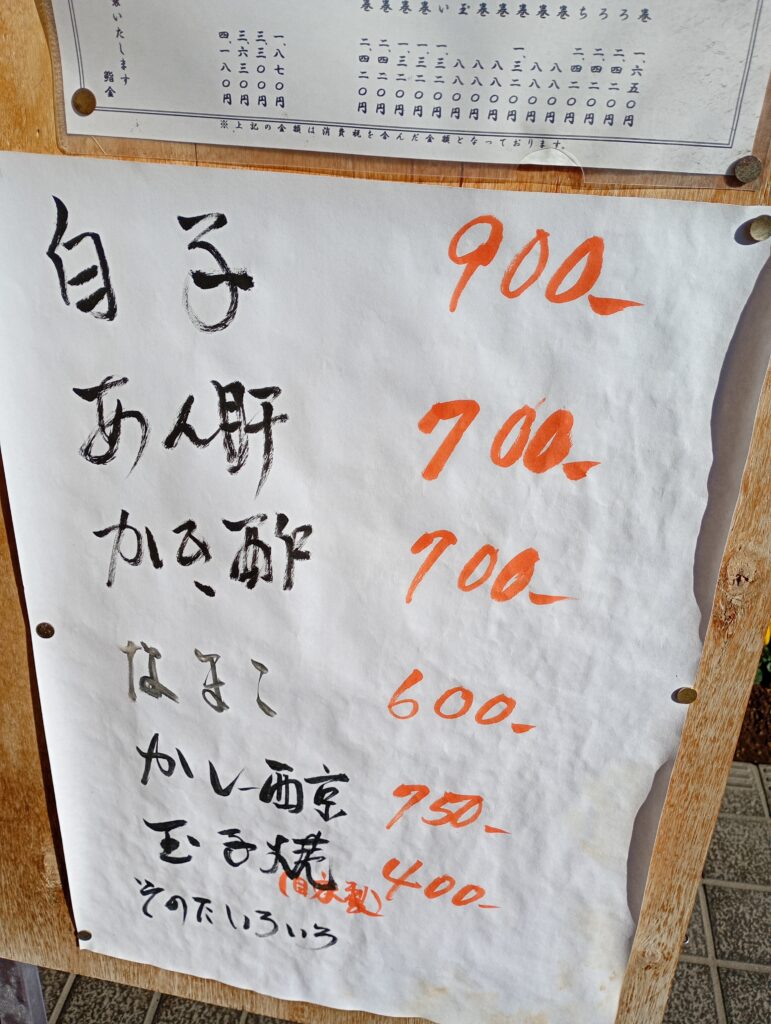 巻 一、六五〇円
ろ 二、四二〇円
ろ 二、四二〇円
ち 二、四二〇円
巻 八八〇円
巻 八八〇円
巻 一、三二〇円
巻 八八〇円
巻 八八〇円
玉 八八〇円
い 一、三二〇円
巻 一、三二〇円
巻 一、三二〇円
巻 二、四二〇円
巻 二、四二〇円
一、八七〇円
三、三〇〇円
三、六三〇円
四、一八〇円
いたします 鮨金
※上記の金額は消費税を含んだ金額となっております。
白子 900-
あん肝 700-
かき酢 700-
なまこ 600-
カレー西京 750-
玉子焼 400-
(自家製)
そのたいろいろ